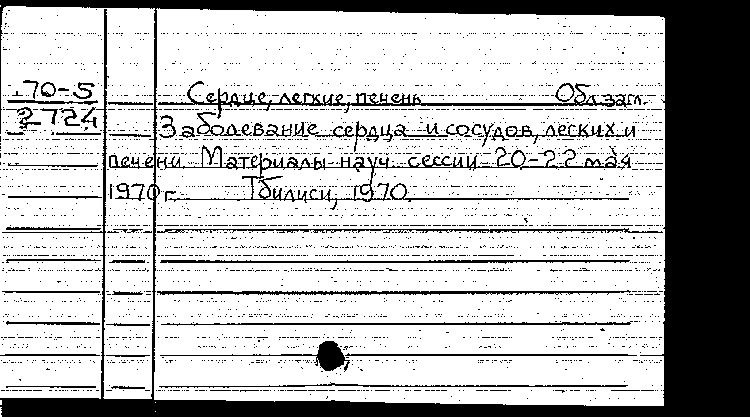 70-5
2724
Сердце, легкие, печень Обл. загл.
Заболевание сердца и сосудов, легких и
печени. Материалы науч. сессии 20-22 мая
1970 г. Тбилиси, 1970.